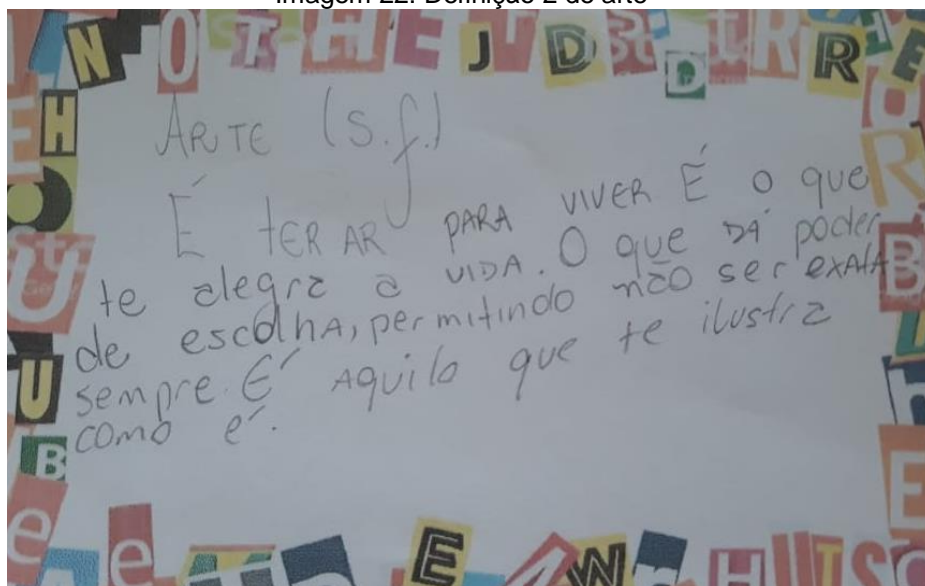 Imagem 22: Definição 2 de arte
ARTE (s.f.)
É tER AR PARA VIVER É o que
te alegra a VIDA. O que DÁ poder
de escolhA, permitindo não ser exAtA
sempre. É Aquilo que te ilustra
como é.